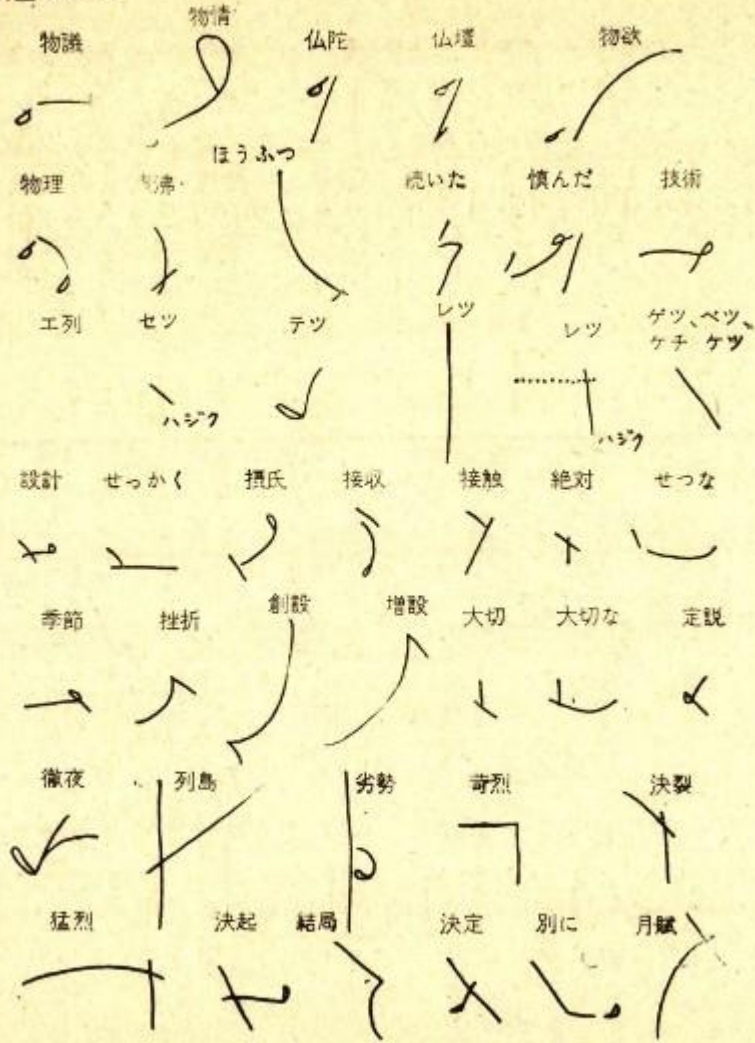 物議 物情 仏陀 仏壇 物欲
ほうふつ
物理 沸 続いた 慎んだ 技術
エ列 セツ テツ レツ レツ ゲツ、ベツ、
ケチ ケツ
ハジク ハジク
設計 せっかく 摂氏 接収 接触 絶対 せつな
季節 挫折 創設 増設 大切 大切な 定説
徹夜 列島 劣勢 苛烈 決裂
猛烈 決起 結局 決定 別に 月賦